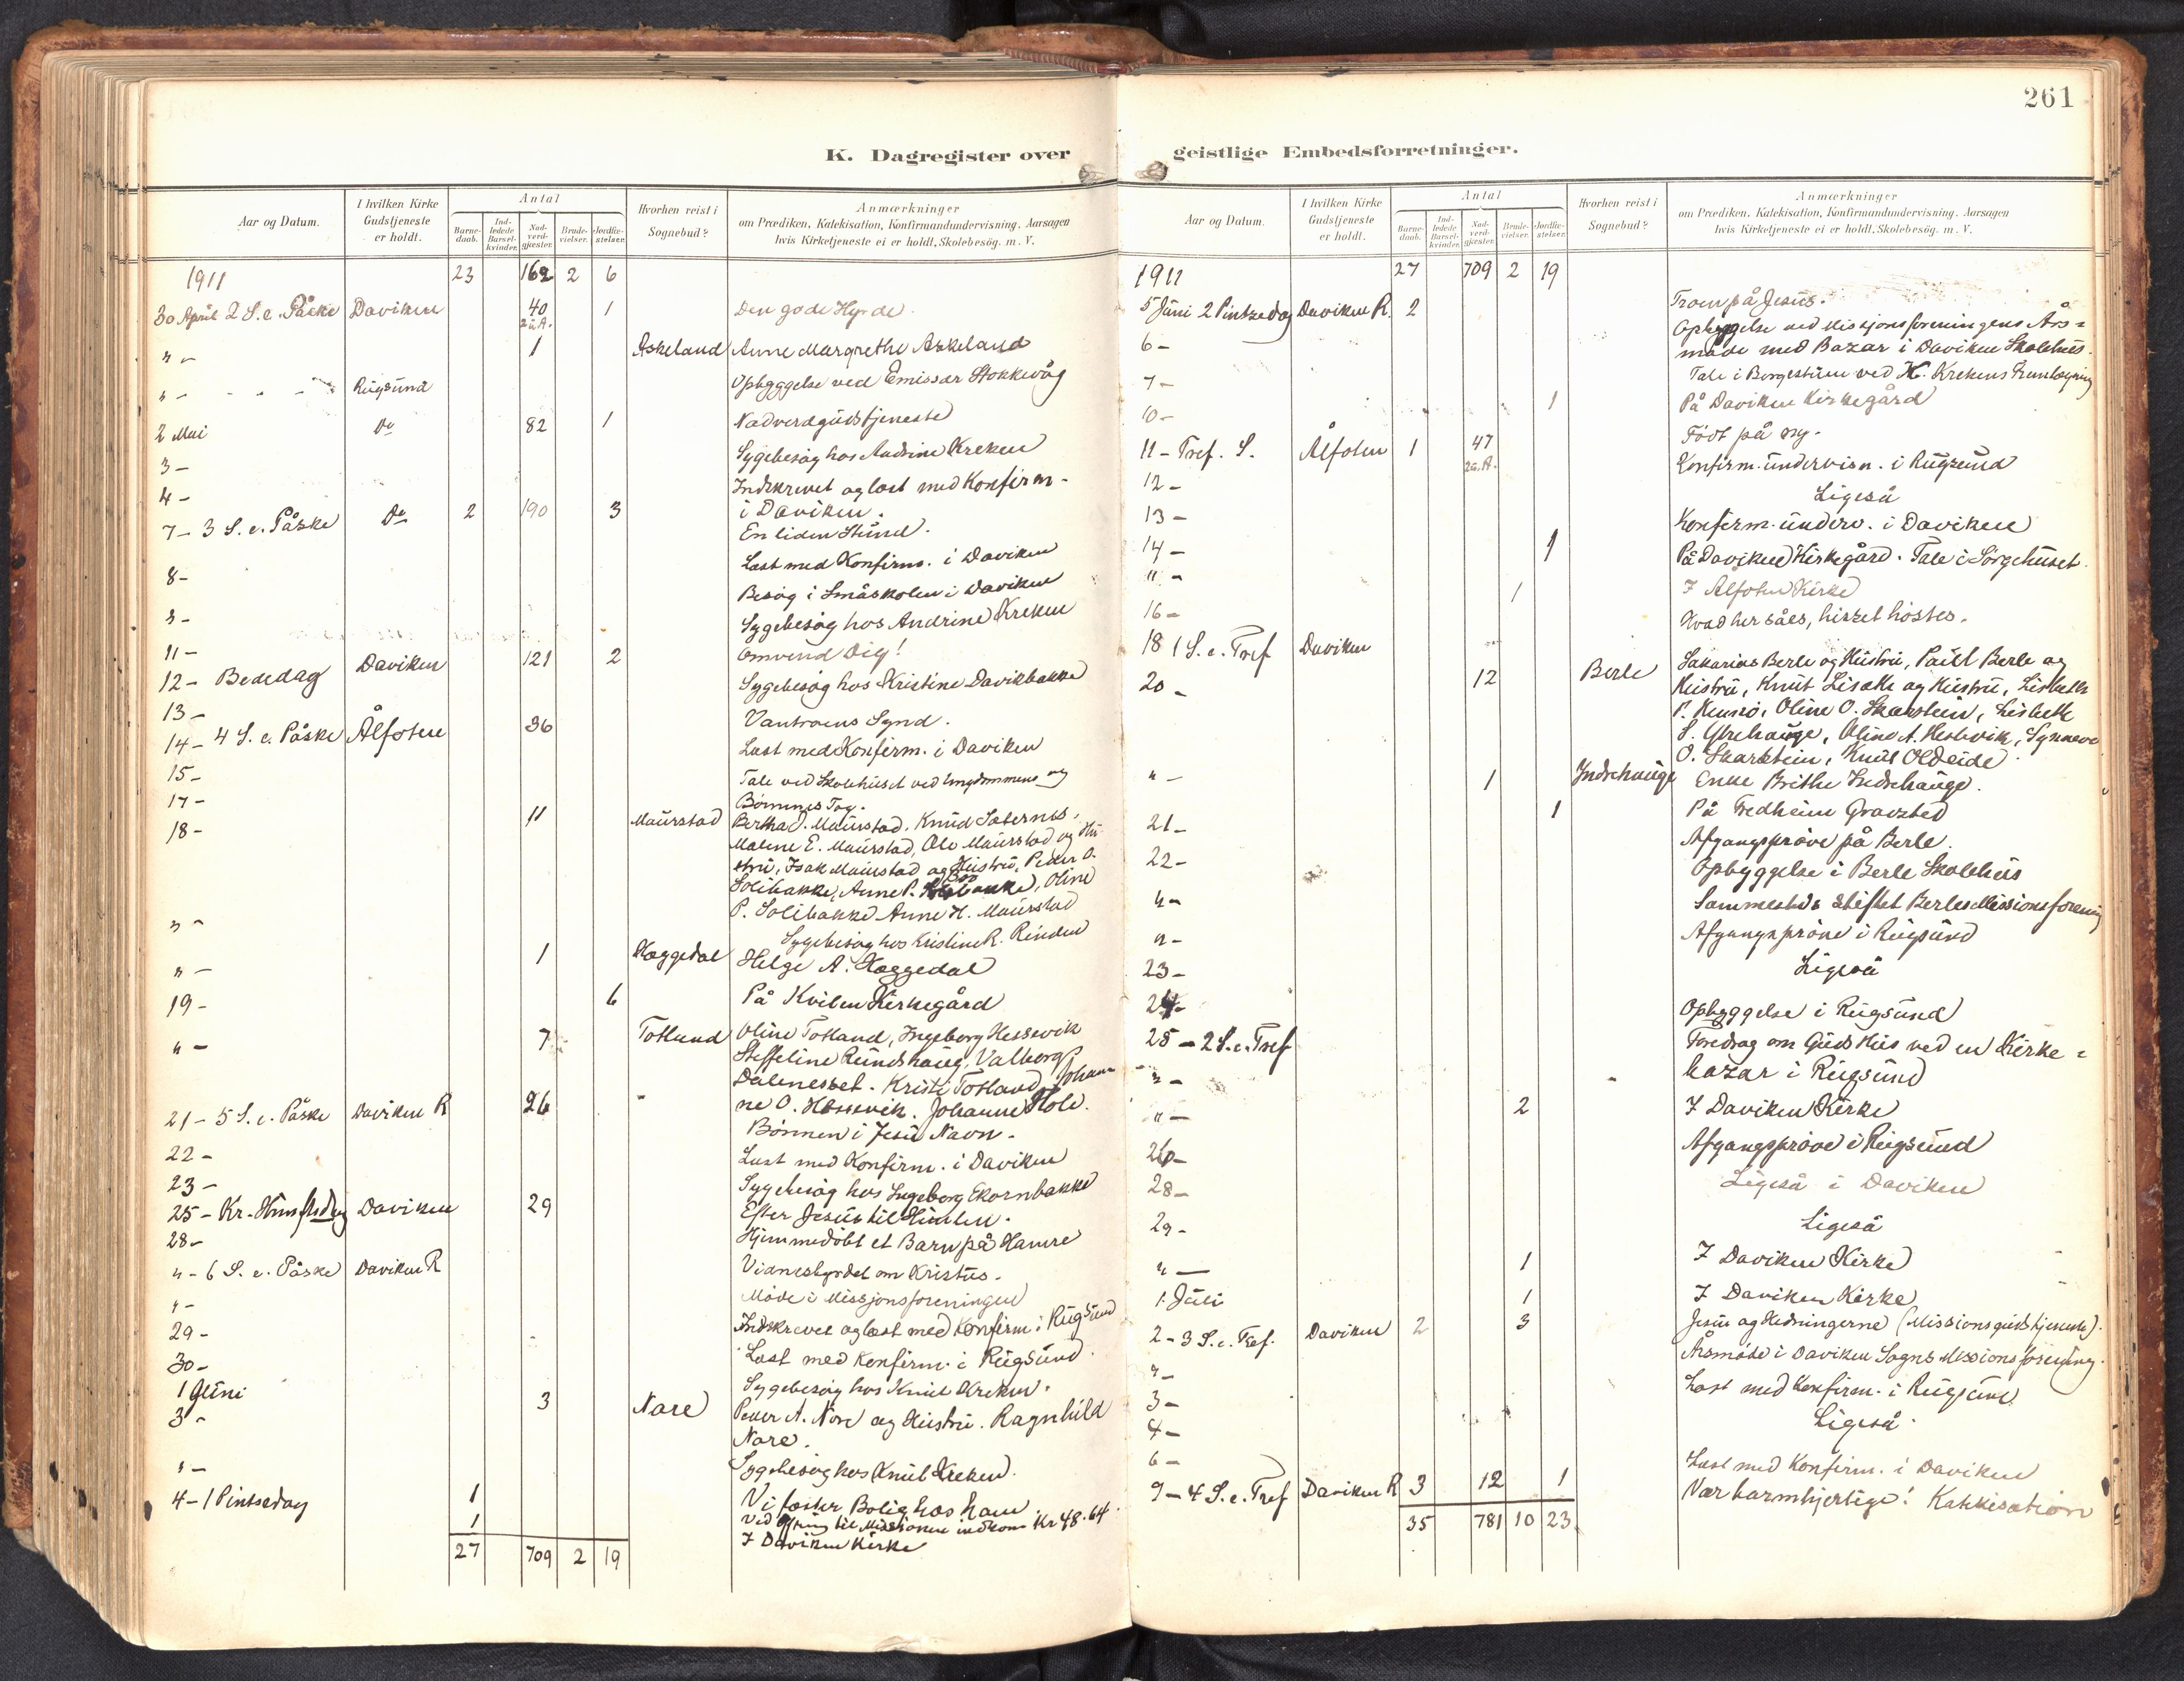 261
K. Dagregister over geistlige Embedsforretninger.
Aar og Datum. I hvilken Kirke Gudstjeneste er holdt. Antal Barnedaab. Indledede Barselkvinder. Nadverdgjester. Brudevielser. Jordfæstelser. Hvorhen reist i Sognebud? Anmærkninger om Prædiken, Katekisation, Konfirmandundervisning, Aarsagen hvis Kirketjeneste ei er holdt, Skolebesøg. m. V.
1911 23 162 2 6
30 April 2 S. e. Påske Daviken 40 1 Den gode Hyrde.
2 u A.
" - 1 Askeland Anne Margrethe Askeland
" - - - - Rugsund Opbyggelse ved Emissær Stokkevåg
2 Mai Do 82 1 Nadverdgudstjeneste
3 - Sygebesøg hos Andrine Kreken
4 - Indskrevet og læst med Konfirm-
i Daviken.
7 - 3 S. e. Påske Do 2 190 3 En liden Stund.
8 - Læst med Konfirm. i Daviken
" - Besøg i Småskolen i Daviken
11 - Sygebesøg hos Andrine Kreken
12 - Bededag Daviken 121 2 Omvend Dig!
13 - Sygebesøg hos Kristine Davikbakke
14 - 4 S. e. Påske Ålfoten 36 Vantroens Synd.
15 - Læst med Konfirm. i Daviken
17 - Tale ved Skolehuset ved Ungdommens og
Børnenes Tog.
18 - 11 Maurstad Bertha J. Maurstad. Knud Sæternes.
Malene E. Maurstad, Ole Maurstad og Hu-
stru, Isak Maurstad og Hustru, Peder O.
Solibakke, Anne P. Solibakke, Oline
P. Solibakke Anne H. Maurstad
" - Sygebesøg hos Kristine R. Rinden
" - 1 Hæggedal Helge A. Hæggedal
19 - 6 På Kvilen Kirkegård
" - 7 Totland Oline Totland, Ingeborg Hessevik
Steffeline Rundshaug, Valborg
Dalenesset. Kristi Totland, Johan-
ne O. Hessevik. Johanne Hole.
21 - 5 S. e. Påske Daviken R 26 Bønnen i Jesu Navn.
22 - Læst med Konfirm. i Daviken
23 - Sygebesøg hos Ingeborg Ekornbakke
25 - Kr. Himflsdag Daviken 29 Efter Jesus til Himlen.
28 - Hjemmedøbt et Barn på Hamre
" - 6 S. e. Påske Daviken R Vidnesbyrdet om Kristus.
" - Møde i Missjonsforeningen
29 - Indskrevet og læst med Konfirm. i Rugsund
30 - Læst med Konfirm. i Rugsund.
1 Juni Sygebesøg hos Knut Kreken.
3 - 3 Nore Peder A. Nore og Hustru. Ragnhild
Nore.
" - Sygebesøg hos Knut Kreken.
4 - 1 Pintsedag 1 Vi fæster Bolig hos ham
Ved Ofring til Missionen indkom Kr 48.64
1 I Daviken Kirke
27 709 2 19
Aar og Datum. I hvilken Kirke Gudstjeneste er holdt. Antal Barnedaab. Indledede Barselkvinder. Nadverdgjester. Brudevielser. Jordfæstelser. Hvorhen reist i Sognebud? Anmærkninger om Prædiken, Katekisation, Konfirmandundervisning, Aarsagen hvis Kirketjeneste ei er holdt, Skolebesøg. m. V.
1911 27 709 2 19
5 Juni 2 Pintsedag Daviken R. 2 Troen på Jesus.
6 - Opbyggelse ved Missjonsforeningens Års=
møde med Bazar i Daviken Skolehus.
7 - Tale i Borgestuen ved H. Krekens
10 - 1 På Daviken Kirkegård
11 - Tref. S. Ålfoten 1 47 Født på ny.
2 u. A.
12 - Konfirm. undervisn. i Rugsund
13 - Ligeså
14 - Konfirm. underv. i Daviken
" - 1 På Daviken Kirkegård. Tale i Sørgehuset.
16 - 1 I Ålfoten Kirke
18 1 S. e. Tref Daviken Hvad her såes, hisset høstes.
20 - 12 Berle Sakarias Berle og Hustru, Paul Berle og
Hustru, Knut Lisæte og Hustru, Lisbeth
P. Oline O. Skarstein, Lisbeth
S. Ytrehauge, Oline A. Hestevik, Synneve
O. Skarstein, Knut Oldeide.
" - 1 Indrehauge Enke Brithe Indrehauge.
21 - 1 På Fredheim Gravsted
22 - Afgangsprøve på Berle.
" - Opbyggelse i Berle Skolehus
" - Sammesteds stiftet Berles Missionsforening
23 - Afgangsprøve i Rugsund
24 - Ligeså
25 - 2 S. e. Tref Opbyggelse i Rugsund
" - Foredrag om Guds Hus ved en Kirke=
bazar i Rugsund
" - 2 I Daviken Kirke
26 - Afgangsprøve i Rugsund
28 - Ligeså i Daviken
29 - Ligeså
" - 1 I Daviken Kirke
1 Juli 1 I Daviken Kirke
2 - 3 S. e. Tref. Daviken 2 3 Jesus og Hedningerne (Missionsgudstjeneste).
" - Årsmøde i Daviken Sogns Missionsforening.
3 - Læst med Konfirm. i Rugsund
4 - Ligeså.
6 - Læst med Konfirm. i Daviken
9 - 4 S. e. Tref Daviken R 3 12 1 Vær barmhjertige! Katekisation
35 781 10 23